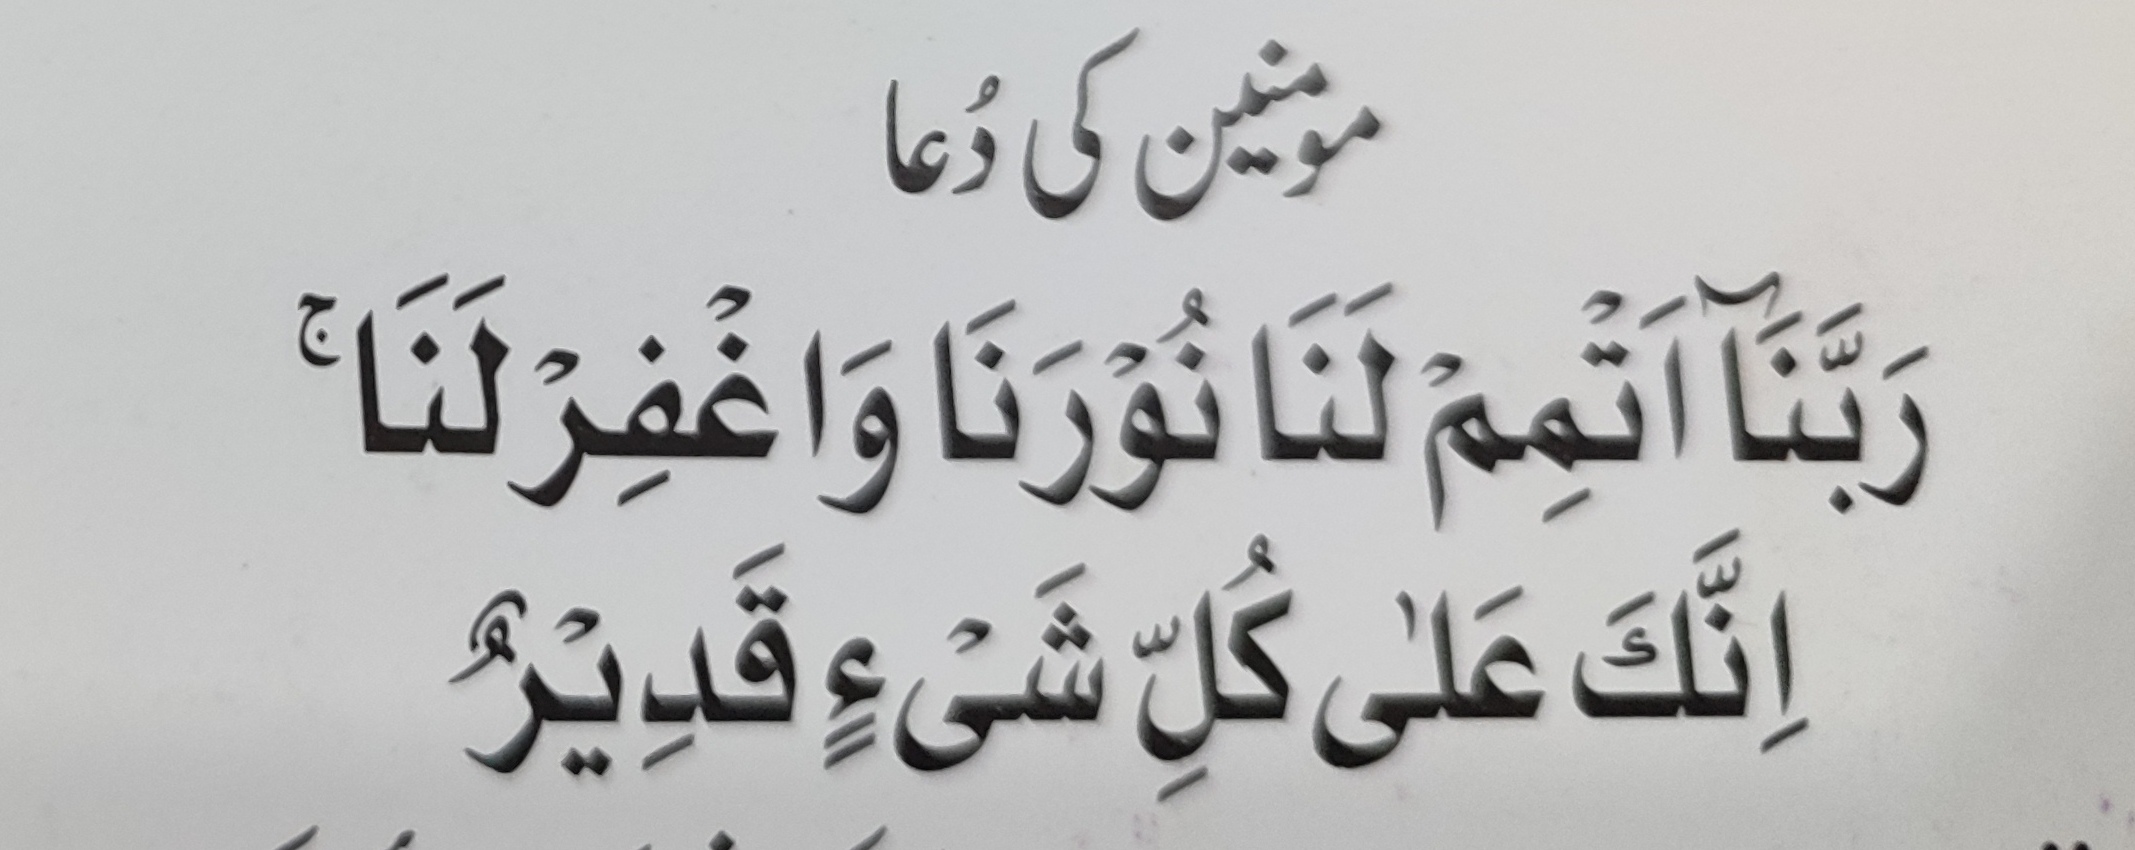 مومنین کی دُعا
رَبَّنَاۤ اَتْمِمْ لَنَا نُوْرَنَا وَاغْفِرْ لَنَا ۚ
اِنَّكَ عَلٰى كُلِّ شَىْءٍ قَدِيْرٌ